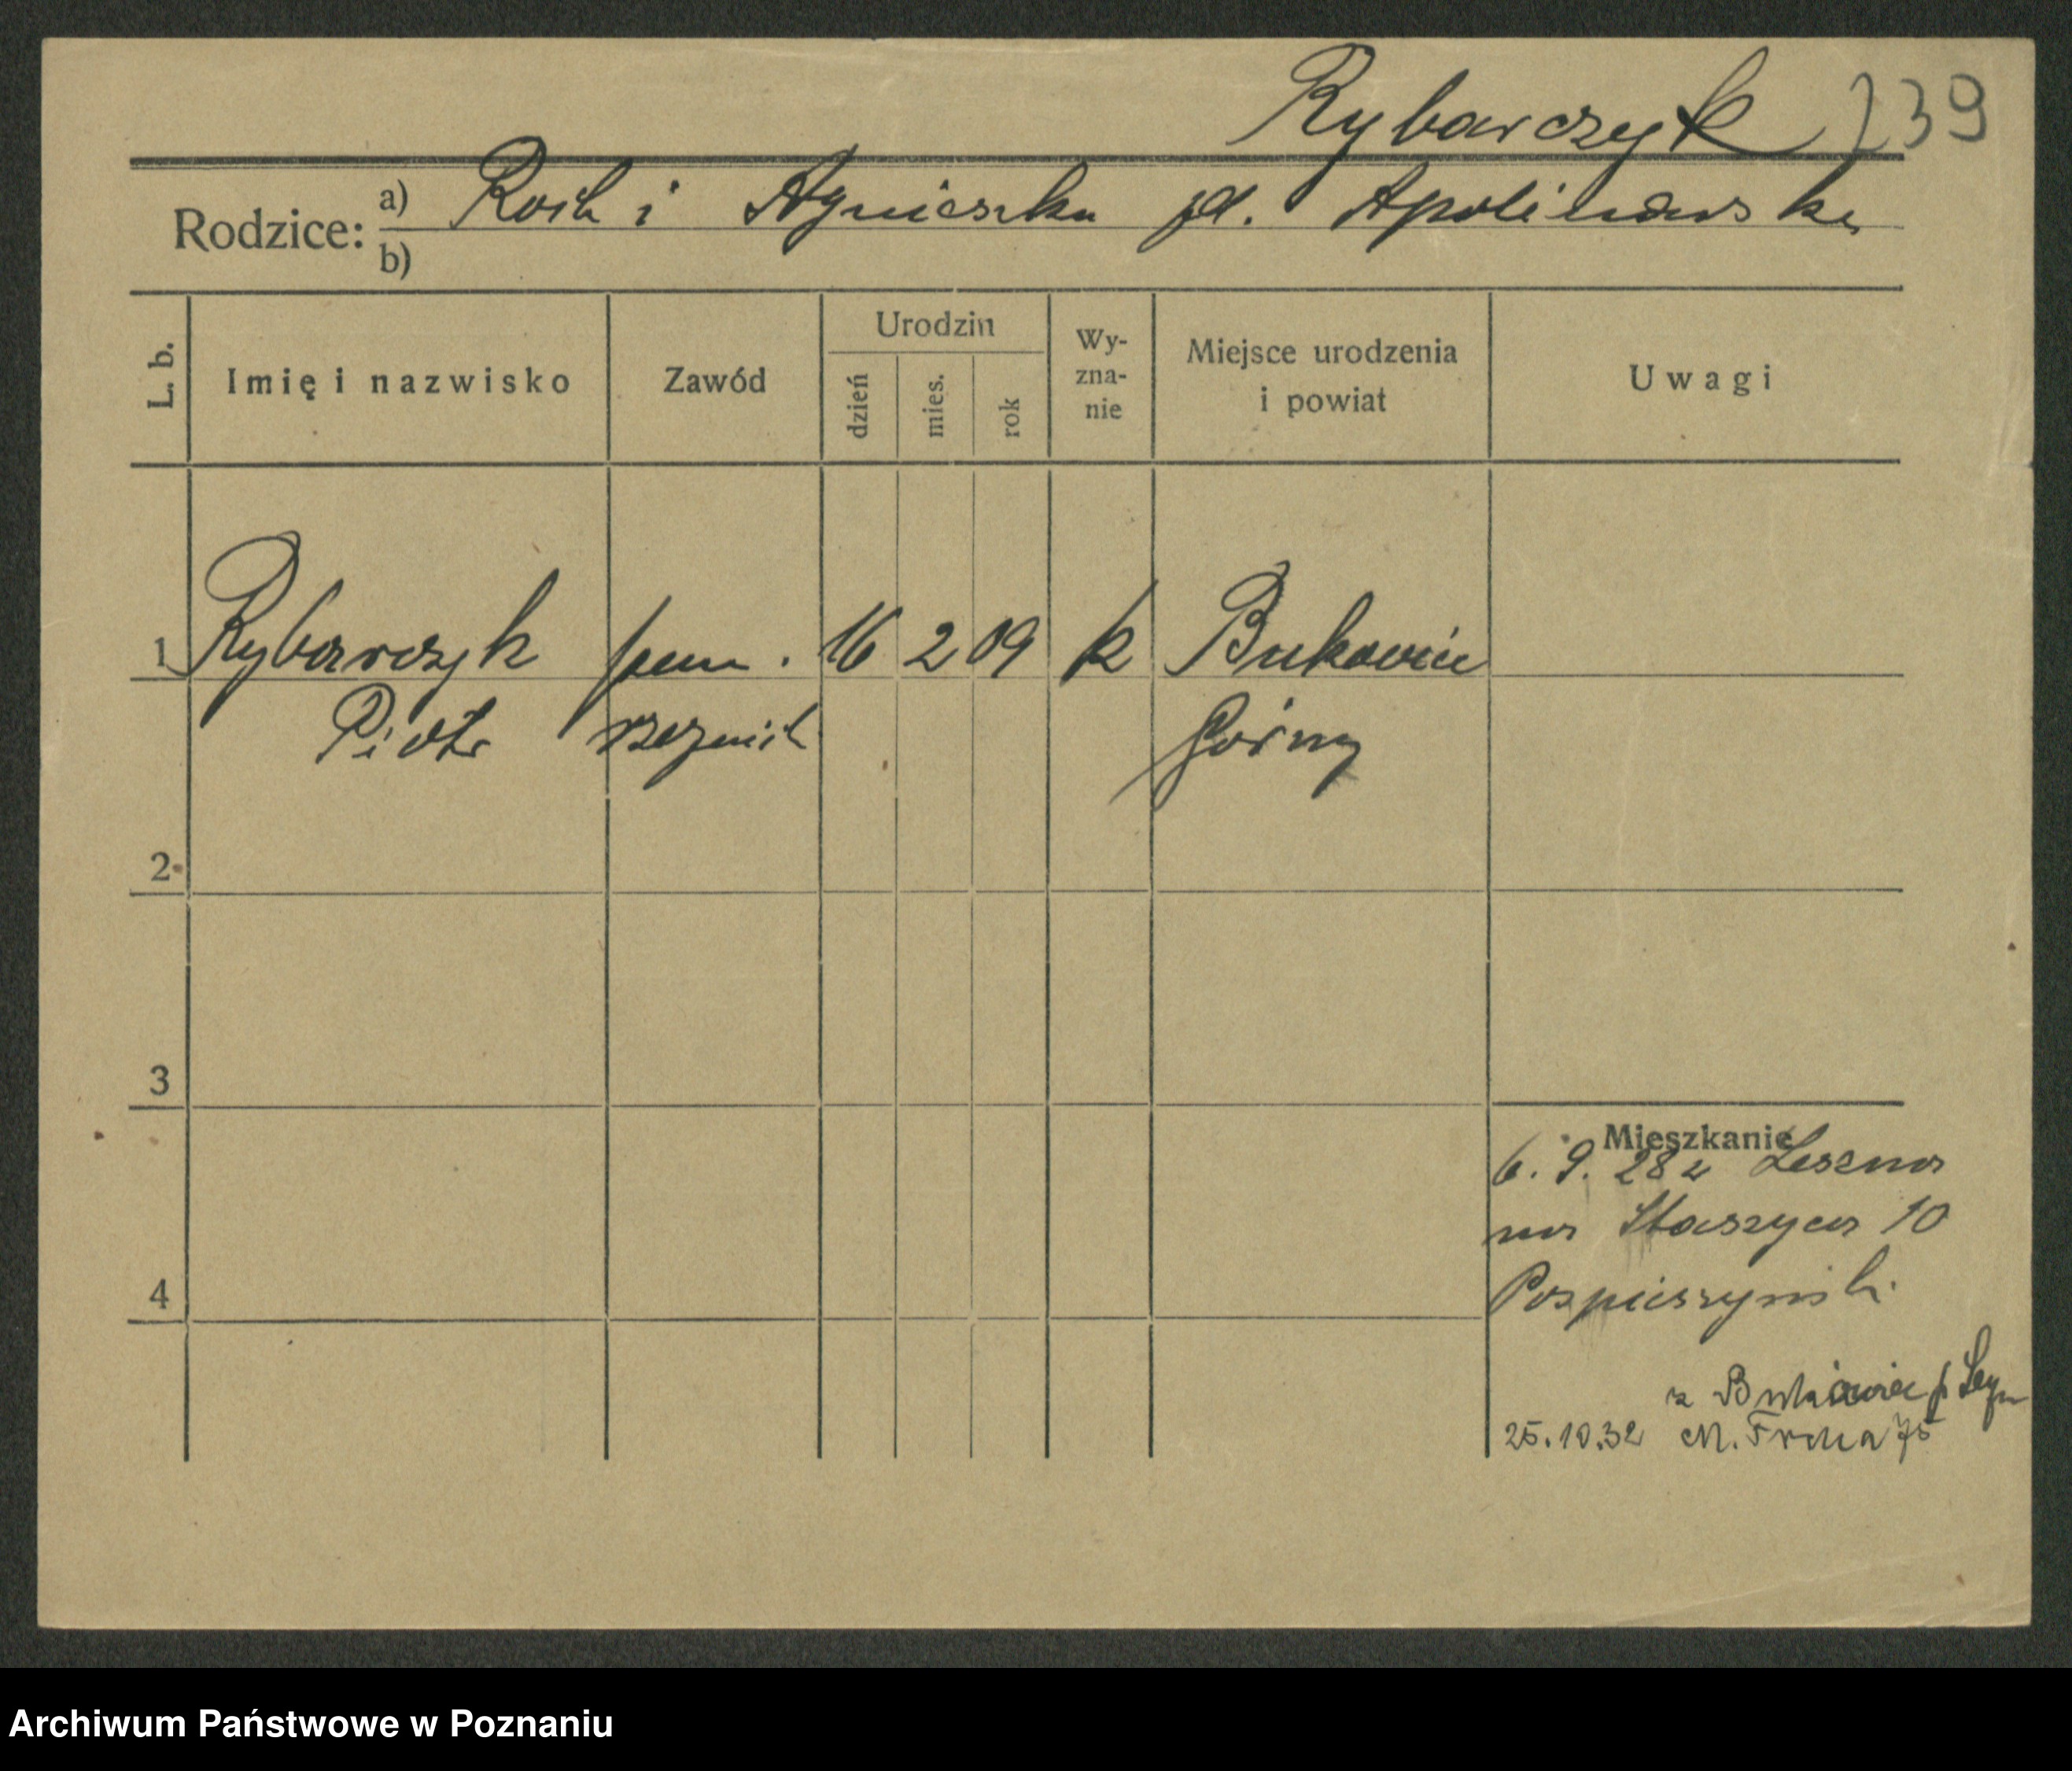 Rybarczyk 239
Rodzice: a) Roch i Agnieszka zd. Apolinarska
b)
L. b. Imię i nazwisko Zawód Urodzin dzień mies. rok Wy-zna-nie Miejsce urodzenia i powiat Uwagi
1 Rybarczyk pom. 16 2 09 k Bukowiec
Piotr rzeznick Górny
2
3
Mieszkanie
6. 9. 28 z Leszna
na Staszyca 10
4 Pospieszynski
z Bukowiec p
25.10.32 M. Focha 75
Archiwum Państwowe w Poznaniu